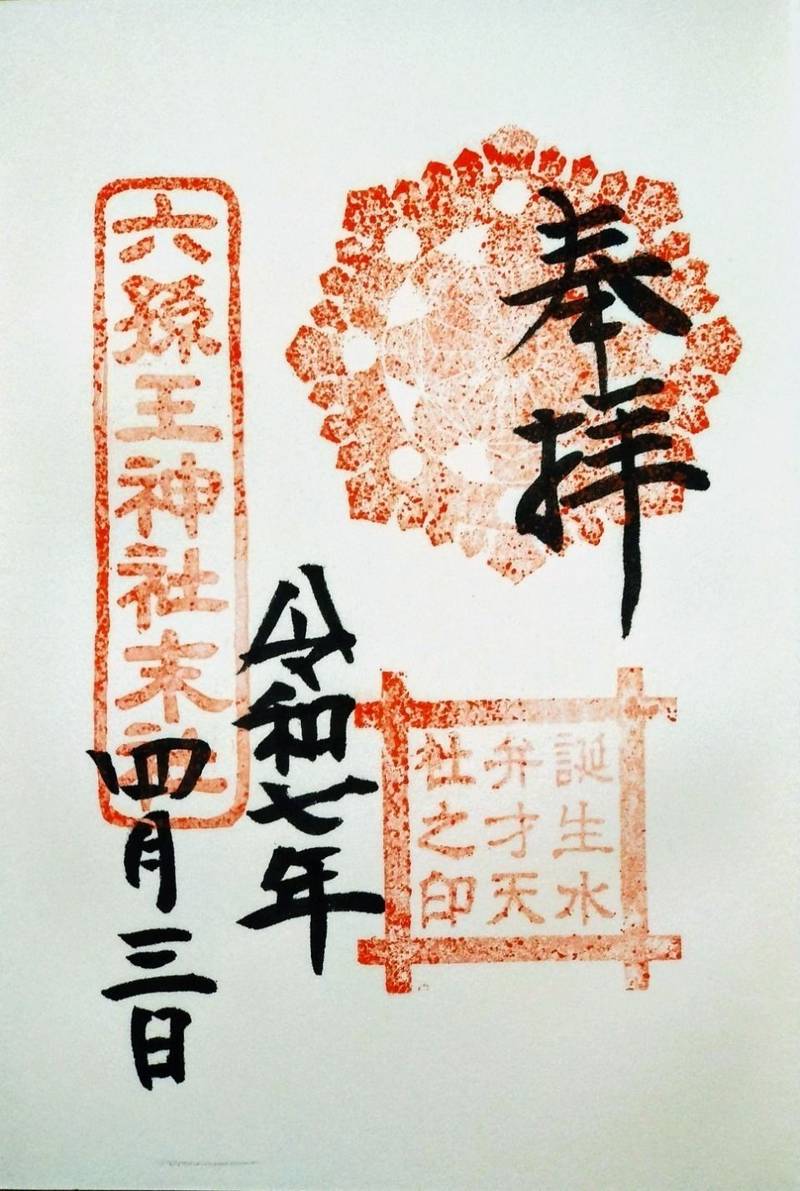 奉拝
誕生水
弁才天
社之印
令和七年
四月三日
六孫王神社末社